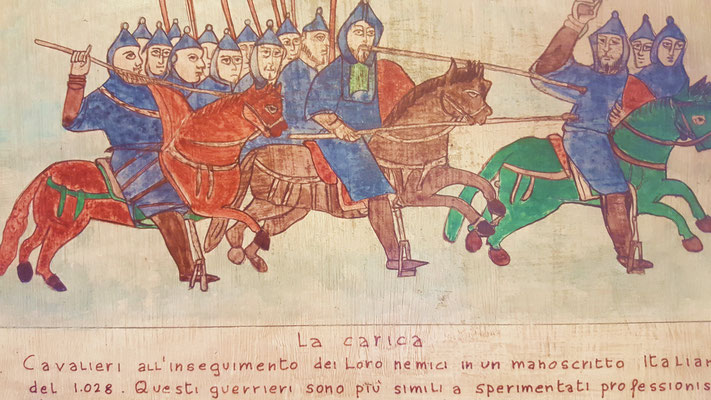 La carica
Cavalieri all'inseguimento dei Loro nemici in un manoscritto Italian
del 1.028. Questi guerrieri sono più simili a sperimentati professionis